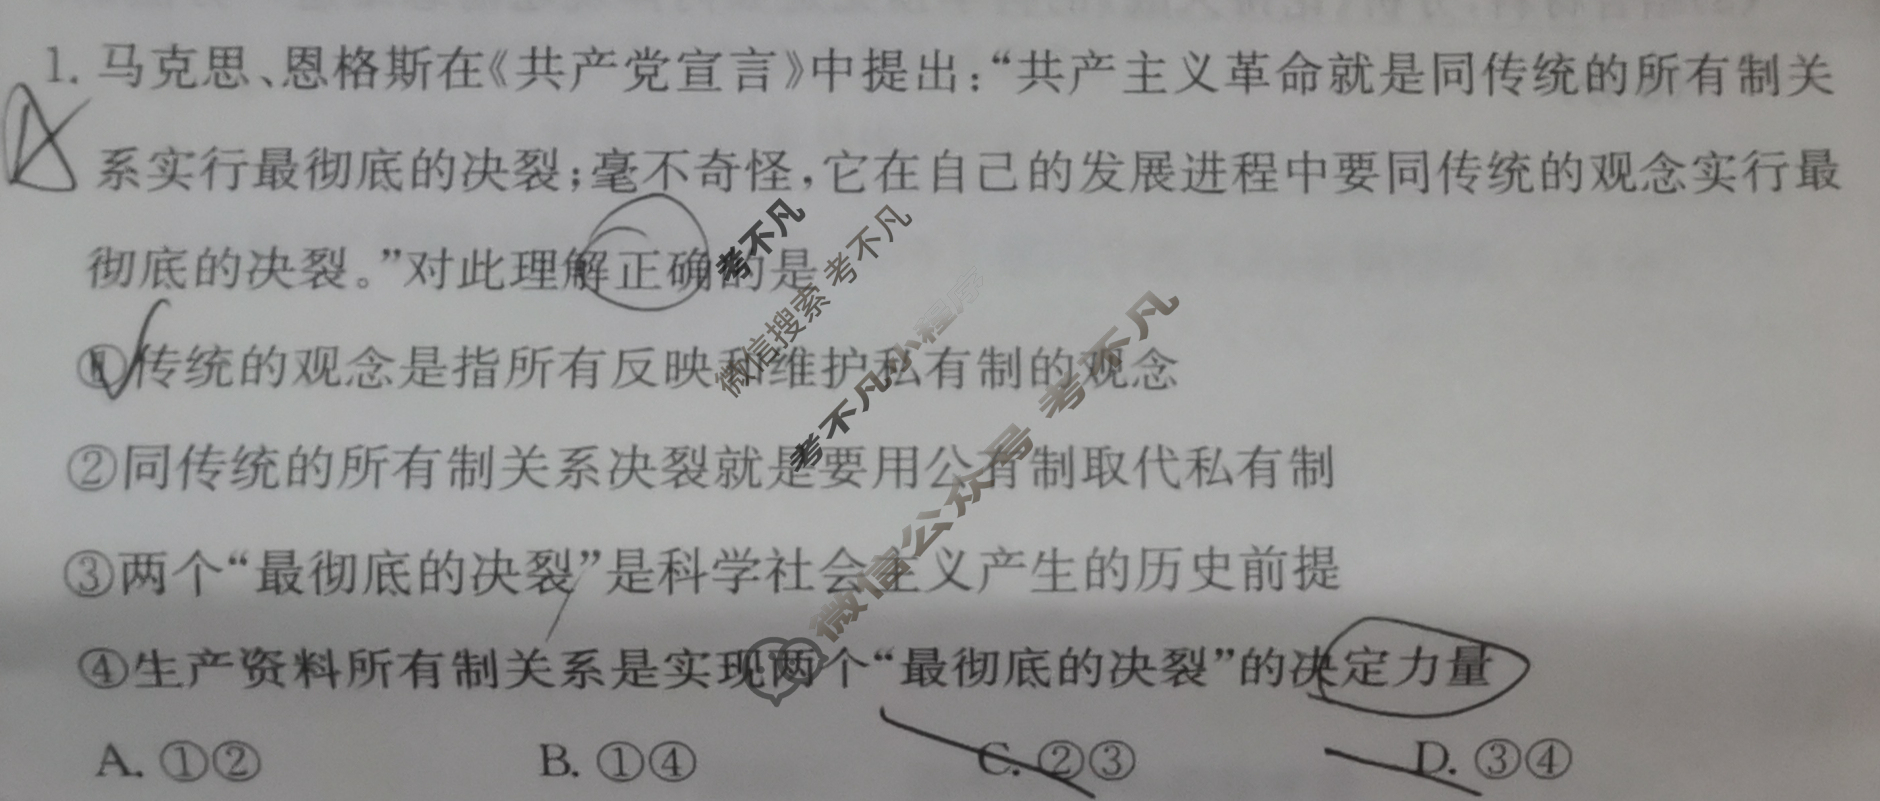 1. 马克思、恩格斯在《共产党宣言》中提出：“共产主义革命就是同传统的所有制关
系实行最彻底的决裂；毫不奇怪，它在自己的发展进程中要同传统的观念实行最
彻底的决裂。”对此理解正确的是
①传统的观念是指所有反映和维护私有制的观念
②同传统的所有制关系决裂就是要用公有制取代私有制
③两个“最彻底的决裂”是科学社会主义产生的历史前提
④生产资料所有制关系是实现两个“最彻底的决裂”的决定力量
A. ①② B. ①④ C. ②③ D. ③④
考不凡
微信搜索 考不凡
考不凡小程序
微信公众号 考不凡